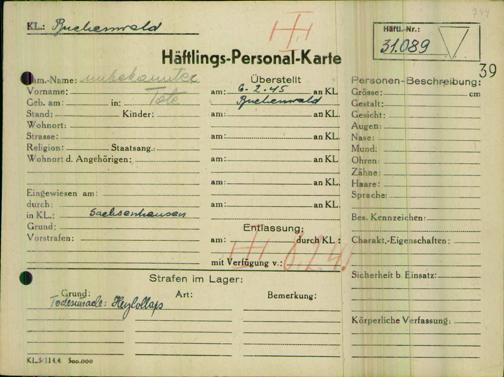 KL.: Buchenwald
Häftl.-Nr.:
31.089
39
Häftlings-Personal-Karte
Fam.-Name: unbekannter
Vorname: Tote
Geb. am: in:
Stand: Kinder:
Wohnort:
Strasse:
Religion: Staatsang.
Wohnort d. Angehörigen:
Eingewiesen am:
durch:
in KL.: Sachsenhausen
Grund:
Vorstrafen:
Überstellt
am: 6.2.45 an KL.
Buchenwald
am: an KL.
am: an KL.
am: an KL.
am: an KL.
am: an KL.
Entlassung:
am: durch KL.:
mit Verfügung v.: 6.2.45
Personen-Beschreibung:
Grösse: cm
Gestalt:
Gesicht:
Augen:
Nase:
Mund:
Ohren:
Zähne:
Haare:
Sprache:
Bes. Kennzeichen:
Charakt.-Eigenschaften:
Sicherheit b Einsatz:
Körperliche Verfassung:
Strafen im Lager:
Grund: Art: Bemerkung:
Todesursache: Herzkollaps
KL.5/11.44 500.000